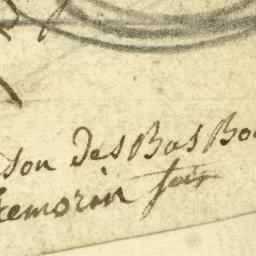 son Des Bas Bo
temorin fait